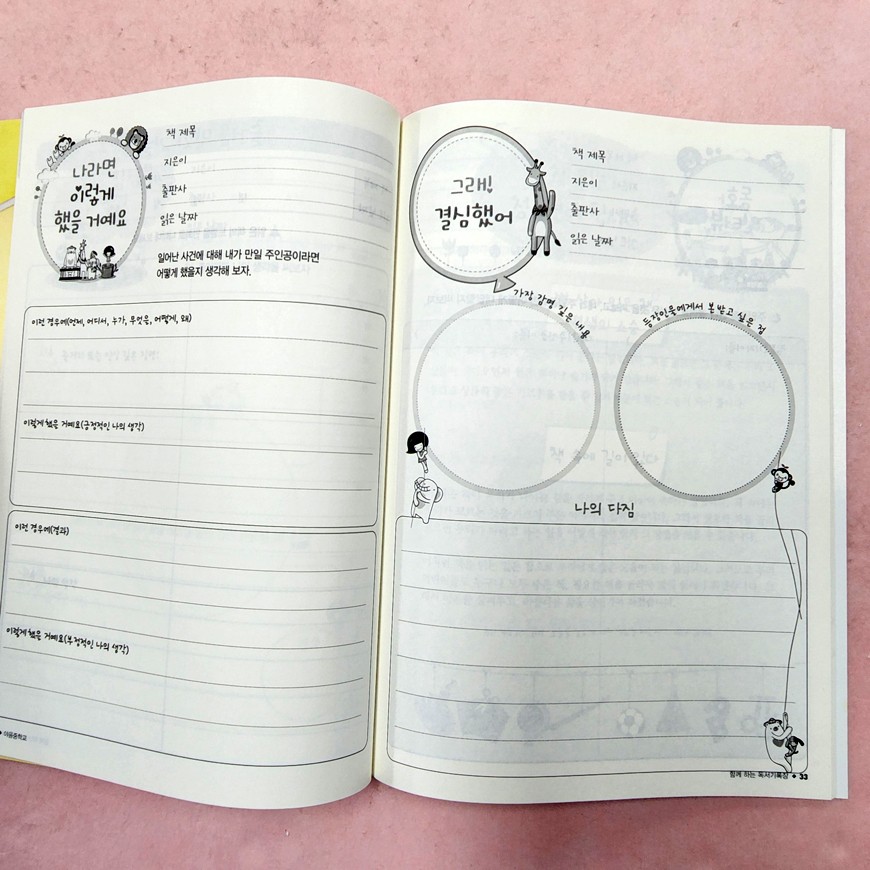 나라면
이렇게
했을 거예요
책 제목
지은이
출판사
읽은 날짜
일어난 사건에 대해 내가 만일 주인공이라면
어떻게 했을지 생각해 보자.
이런 경우에(언제, 어디서, 누가, 무엇을, 어떻게, 왜)
이렇게 했을 거예요(긍정적인 나의 생각)
이런 경우에(결과)
이렇게 했을 거예요(부정적인 나의 생각)
그래!
결심했어
책 제목
지은이
출판사
읽은 날짜
가장 감명 깊은 내용
등장인물에게서 본받고 싶은 점
나의 다짐
함께 하는 독서기록장 33